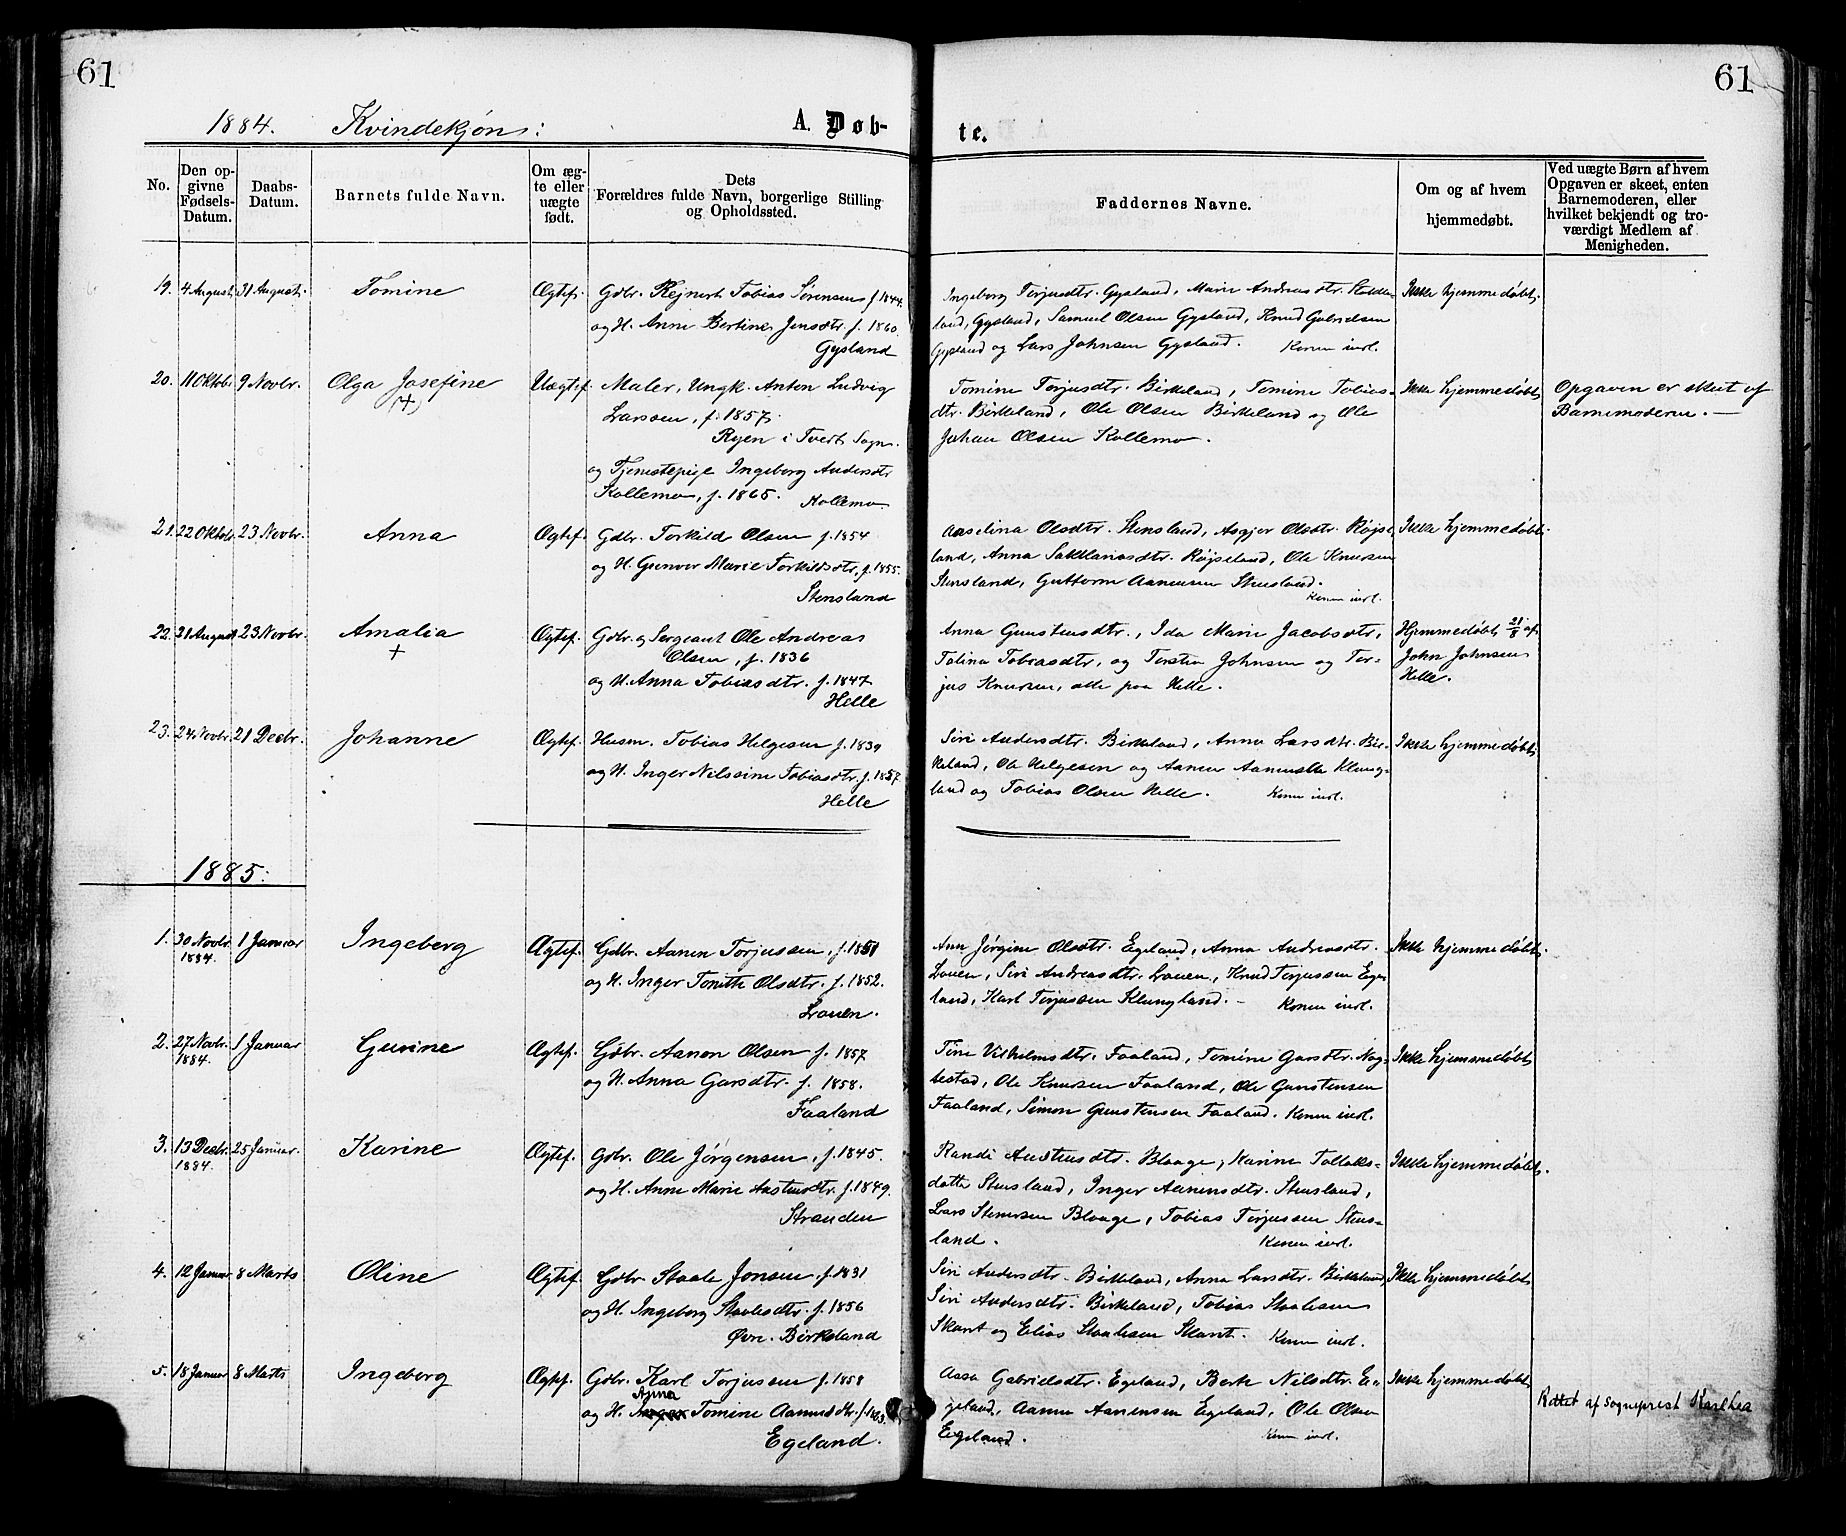 61
61
1884. Kvindekjøn:
A. Døb-
te.
No.
Den op-
givne
Fødsels-
Datum.
Daabs-
Datum.
Barnets fulde Navn.
Om æg-
te eller
uægte
født.
Dets
Forældres fulde Navn, borgerlige Stilling
og Opholdssted.
Faddernes Navne.
Om og af hvem
hjemmedøbt.
Ved uægte Børn af hvem
Opgaven er skeet, enten
Barnemoderen, eller
hvilket bekjendt og tro-
værdigt Medlem af
Menigheden.
19. 4 August 31 August. Tomine Ægtef. Gdbr. Rejnert Tobias Sørensen f. 1844.
og H. Anne Bertine Jensdtr. f. 1860.
Gysland
Ingeborg Terjusdtr. Gysland, Marie Andreasdtr.
land, Gysland, Samuel Olsen Gysland, Knud Gabrielsen
Gysland og Lars Johnsen Gysland. Konen indl.
Ikke hjemmedøbt.
20. 11 Oktobr. 9 Novbr. Olga Josefine Uægtef. Maler, Ungk. Anton Ludvig
(+)
Larsen, f. 1857.
Ryen i Tveit Sogn.
og Tjenestepige Ingeborg Andersdtr
Kollemo, f. 1865. Kollemo
Tomine Torjusdtr. Birkeland, Tomine Tobias-
dtr. Birkeland, Ole Olsen Birkeland og Ole
Johan Olsen Kollemo.
Ikke hjemmedøbt
Opgaven er skeet af
Barnemoderen. —
21. 22 Oktobr. 23 Novbr. Anna Ægtef. Gdbr. Torkild Olsen f. 1854
og H. Gunvor Marie Torkildsdtr, f. 1855.
Stensland
Aaselina Olsdtr. Stensland, Asgjer Olsdtr. Røjse-
land, Anna Røjseland, Ole Knudsen
Stensland, Guttorm Aanensen Stensland.
Konen indl.
Ikke hjemmedøbt.
22. 21 August 23 Novbr. Amalia Ægtef. Gdbr. og Sergeant Ole Andreas
+
Olsen, f. 1836
og H. Anna Tobiasdtr. f. 1847
Helle
Anna Gunstensdtr., Ida Marie Jacobsdtr,
Tolina Tobiasdtr, og Torsten Johnsen og Ter-
jus Knudsen, alle paa Helle.
Hjemmedøbt 21/8 af
John Johnsen
Helle.
23. 24 Novbr. 21 Decbr. Johanne Ægtef. Husm. Tobias Helgesen f. 1839
og H. Inger Nilssine Tobiasdtr. f. 1857.
Helle
Siri Andersdtr. Birkeland, Anna Larsdtr. Bir-
keland, Ole Helgesen og Aanen Klung-
land og Tobias Olsen Helle. Konen indl.
Ikke hjemmedøbt
1885:
1. 30 Novbr. 1 Januar Ingeborg Ægtef. Gdbr. Aanen Torjussen, f. 1851
1884.
og H. Inger Tonette Olsdtr. f. 1852.
Lauen.
Ane Jørgine Olsdtr. Egeland, Anna Andreasdtr.
Lauen, Siri Andreasdtr. Lauen, Knud Terjussen Ege-
land, Karl Terjussen Klungland. – Konen indl.
Ikke hjemmedøbt.
2. 27 Novbr. 1 Januar Gurine Ægtef. Gdbr. Aanen Olsen f. 1857
1884.
og H. Anna Garsdtr. f. 1858.
Faaland
Tine Vilhelmsdtr. Faaland, Tomine Garsdtr. Nag-
lestad, Ole Knudsen Faaland, Ole Gunstensen
Faaland, Simon Gunstensen Faaland. Konen indl.
Ikke hjemmedøbt
3. 13 Decbr. 25 Januar. Karine Ægtef. Gdbr. Ole Jørgensen, f. 1845.
1884.
og H. Anne Marie Austensdtr. f. 1849.
Stranden
Randi Austensdtr. Blaage, Karine Tollaks-
datter Stensland, Inger Aanensdtr. Stensland,
Lars Stenersen Blaage, Tobias Terjussen Stens-
land. Konen indl.
Ikke hjemmedøbt.
4. 12 Januar 8 Marts Oline Ægtef. Gdbr. Staale Jonsen f. 1831
og H. Ingeborg Staalesdtr. f. 1856
Øvre. Birkeland
Siri Andersdtr. Birkeland, Anna Larsdtr. Birkeland,
Siri Andersdtr. Birkeland, Tobias Staalesen
Skart og Elias Staalesen Skart. Konen indl.
Ikke hjemmedøbt
5. 18 Januar 8 Marts Ingeborg Ægtef. Gdbr. Karl Torjussen f. 1858
Anna
og H. Inger Tomine Aanensdtr. f.
Egeland.
Aasa Gabrielsdtr. Egeland, Berte Nilsdtr. E-
geland, Aanen Aanensen Egeland, Ole Olsen
Egeland. Konen indl.
Ikke hjemmedøbt
Rettet af sogneprest Karl Lea